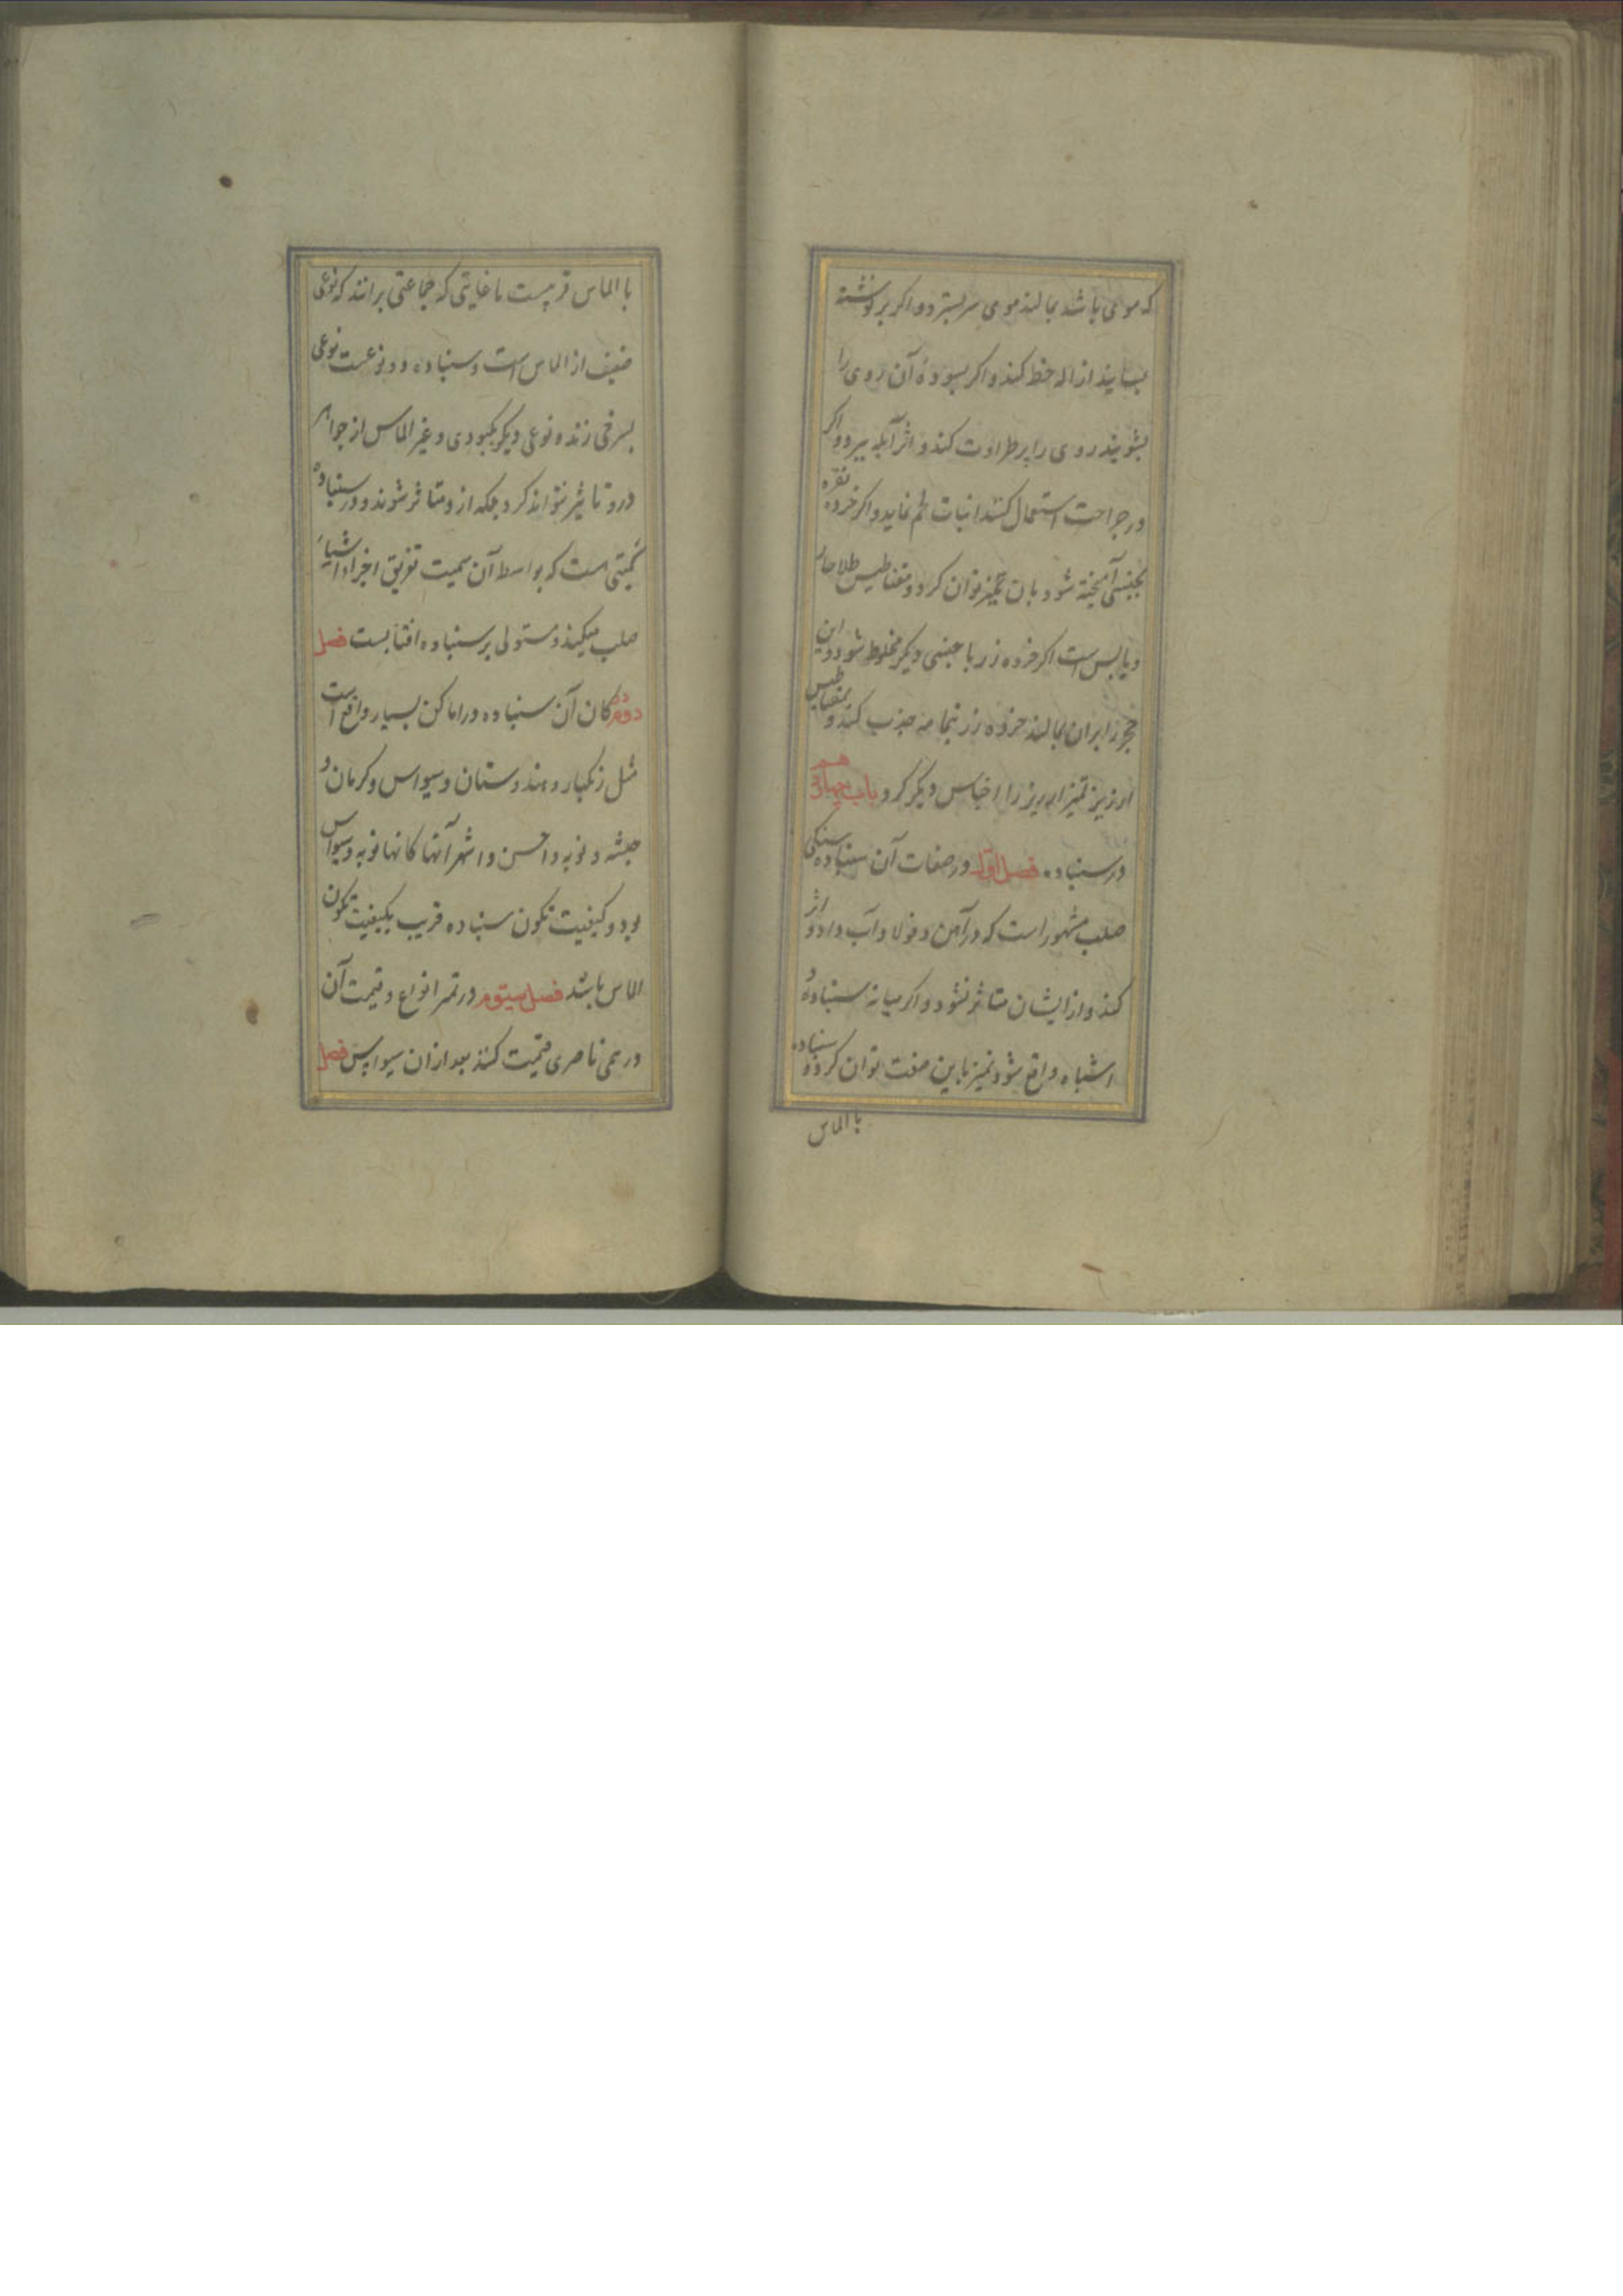 که موی باشد بمالند موی سر بسترد و اگر بر نوشته
بسایند ازاله خط کند و اگر بسوده آن روی را
بشویند روی را پر طراوت کند و اثر آبله ببرد و اگر
در جراحت استعمال کنند انبات لحم نماید و اگر خرده نقره
بجنسی آمیخته شود بان تمیز توان کرد و مغناطیس طلا حار
و یابس است اگر خرده زر با جنسی دیگر مخلوط شود و این
حجر را بران بمالند خرده زر بتمامه جذب کند و بمغناطیس
ارزیز تمیز ارزیز را اجناس دیگر کرد باب چهاردهم
در سنباده فصل اول در صفات آن سنباده سنگی
صلب مشهور است که در آهن و فولاد آب داده اثر
کند و از ایشان متاثر نشود و اگر میانه سنباده و
اشباه واقع شود تمیز باین صفت توان کرد و سنباده
با الماس
با الماس قریبست تا غایتی که جماعتی برانند که نوعی
ضعیف از الماس است و سنباده دو نوعست نوعی
بسرخی زند و نوعی دیگر بکبودی و غیر الماس از جواهر
درو تاثیر نتواند کرد بلکه ازو متاثر شوند و در سنباده
کمیتی است که بواسطه آن سمیت تفریق اجزاء اشیاء
صلب میکند و مستولی بر سنباده افتابست فصل
دوم کان آن سنباده در اماکن بسیار واقع است
مثل زنکبار و هندوستان و سیواس و کرمان و
حبشه و نوبه و احسن و اشهر آنها کانها نوبه و سیواس
بود و کیفیت تکون سنباده قریب بکیفیت تکون
الماس باشد فصل سیوم در تمیز انواع و قیمت آن
درهمی ناصری قیمت کنند بعد ازان سیواس فصل